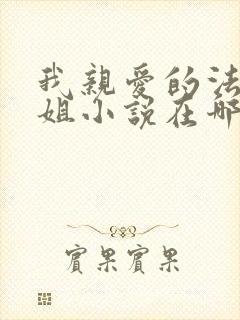 我親愛的法
姐小說在哪
賓果賓果